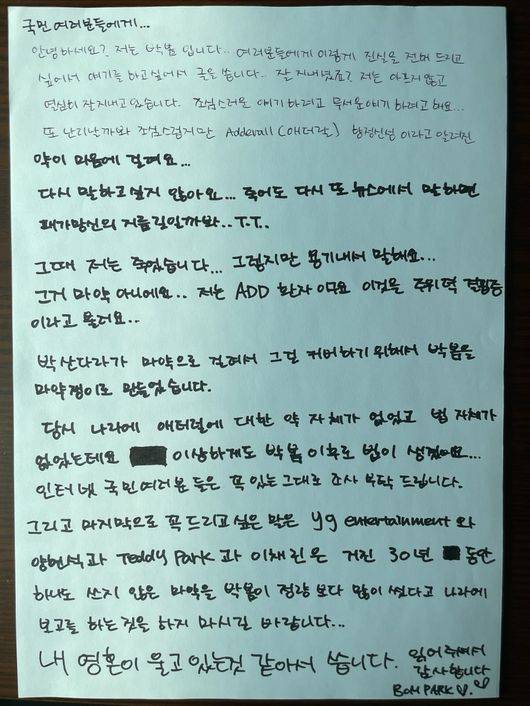 국민 여러분들에게...
안녕하세요? 저는 박봄 입니다.. 여러분들에게 이렇게 진실을 전해 드리고
싶어서 얘기를 하고싶어서 글을 씁니다.. 잘 지내셨죠? 저는 아프지않고
열심히 잘지내고있습니다. 조심스러운 얘기하려고 무서운얘기 하려고 해요...
또 난리날까봐 조심스럽지만 Adderall (애더랄) 향정신성 이라고 알려진
약이 마음에 걸려요...
다시 말하고싶지 않아요... 죽어도 다시 또 뉴스에서 말하면
패가망신의 지름길일까봐..T.T..
그때 저는 죽었습니다... 그렇지만 용기내서 말해요...
그거 마약 아니에요.. 저는 ADD 환자 이고요 이것을 주위력 결핍증
이라고 불러요..
박산다라가 마약으로 걸려서 그걸 커버하기위해서 박봄을
마약쟁이로 만들었습니다.
당시 나라에 애터럴에 대한 약 자체가 없었고 법 자체가
없었는데요 이상하게도 박봄 이후로 법이 생겼어요...
인터넷 국민여러분 들은 꼭 있는그대로 조사 부탁 드립니다.
그리고 마지막으로 꼭 드리고싶은 말은 yg entertainment 와
양현석과 Teddy Park 과 이채린은 거진 30년 동안
하나도 쓰지 않은 마약을 박봄이 정량보다 많이 썼다고 나라에
보고를 하는것을 하지 마시길 바랍니다...
내 영혼이 울고 있는것 같아서 씁니다. 읽어주셔서
감사합니다
BOM PARK ♡.